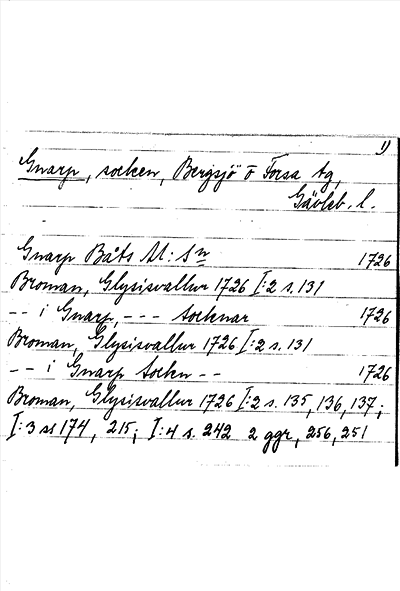 1)
Gnarp, socken, Bergsjö o Forsa tg,
Gävleb. l.
Gnarp Båts M: Sn 1726
Broman, Glysisvallur 1726 I:2 s. 131
-- i Gnarp, --- socknar 1726
Broman, Glysisvallur 1726 I:2 s. 131
-- i Gnarp Sockn -- 1726
Broman, Glysisvallur 1726 I:2 s. 135, 136, 137;
I:3 ss 174, 215; I:4 s. 242 2 ggr, 256, 251